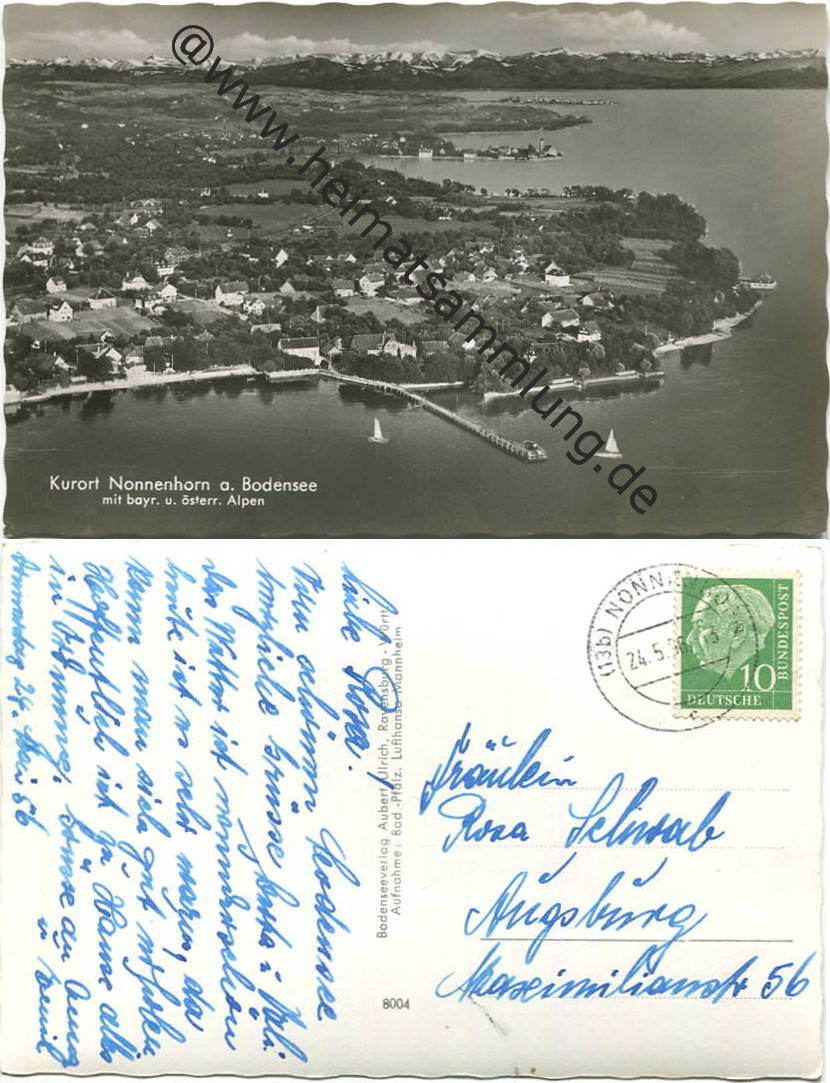 @www.heimatsammlung.de
Kurort Nonnenhorn a. Bodensee
mit bayr. u. österr. Alpen
Liebe Rosa!
Vom schönen Bodensee
herzliche Grüsse
Das Wetter ist wunderschön
heute ist es sehr warm, da
kann man sich gut erholen
Hoffentlich ist zu Hause alles
in Ordnung. Grüsse an
Donnerstag 24. Mai 56
Bodenseeverlag Aubert Ulrich, Ravensburg - Württ.
Aufnahme: Bad.-Pfälz. Lufthansa Mannheim
8004
(13b) NONNENHORN
24.5.56
c
10
DEUTSCHE
BUNDESPOST
Fräulein
Rosa Schwab
Augsburg
Maximilianstr 56